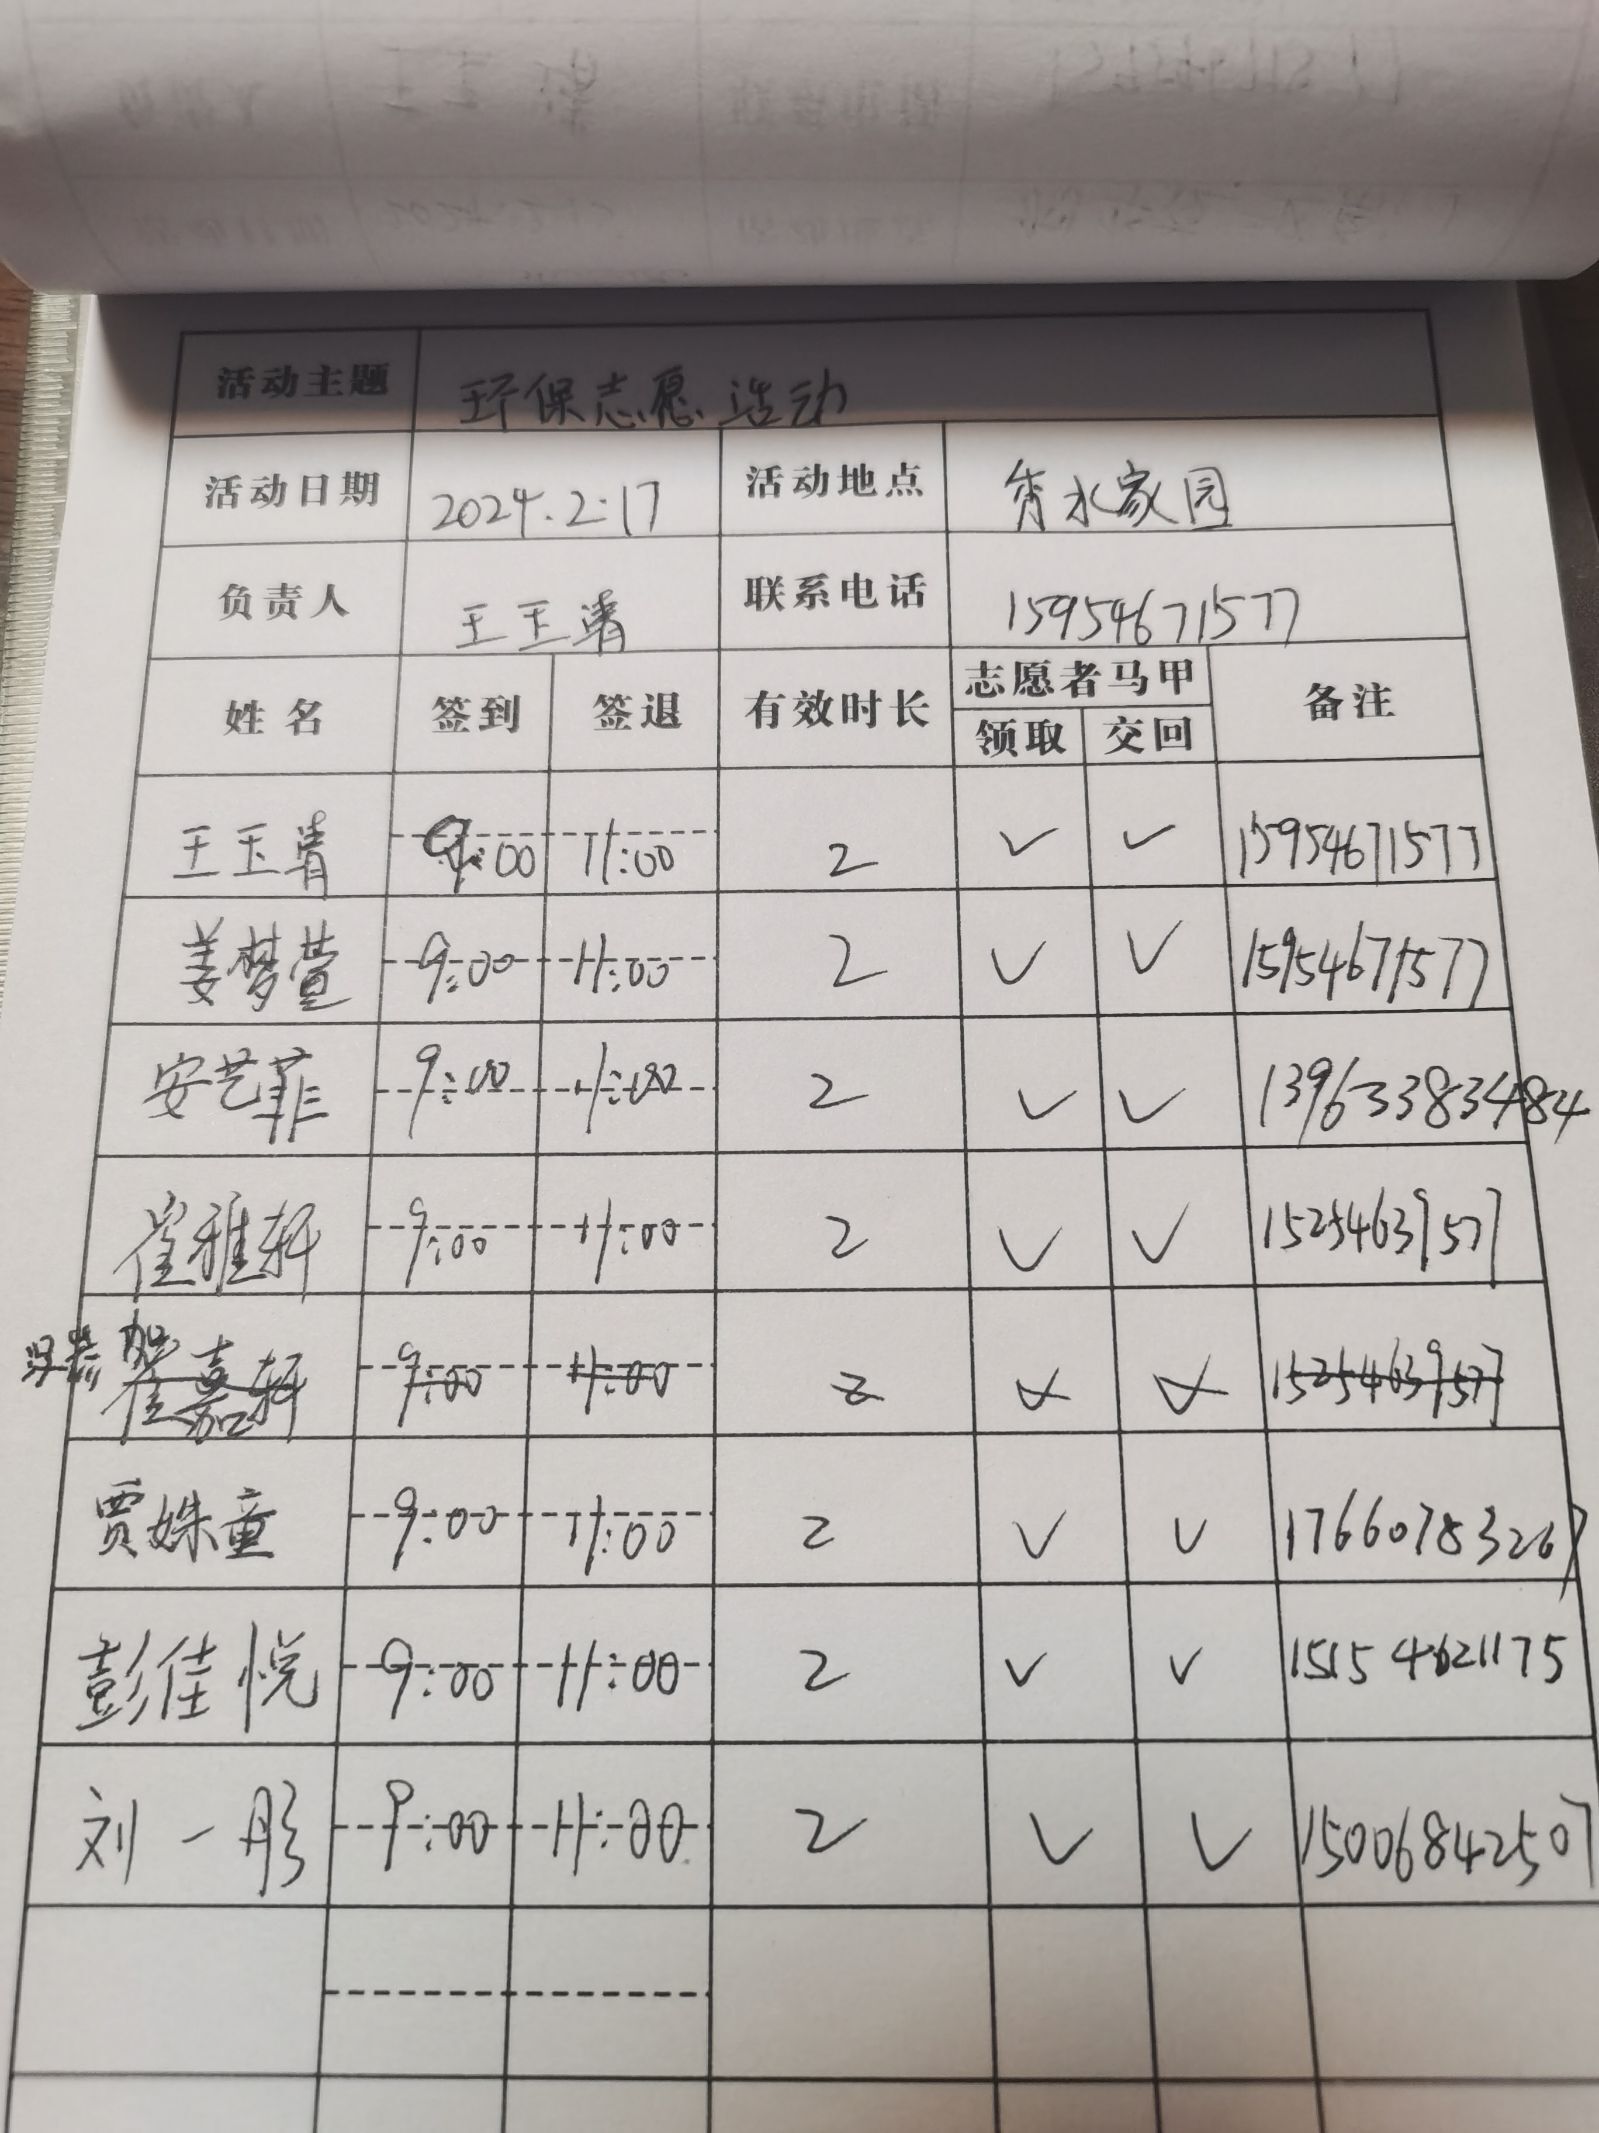 活动主题 环保志愿活动
活动日期 2024.2.17 活动地点 秀水家园
负责人 王玉清 联系电话 15954671577
姓名 签到 签退 有效时长 志愿者马甲 备注
领取 交回
王玉清 9:00 11:00 2 ✓ ✓ 15954671577
姜梦萱 9:00 11:00 2 ✓ ✓ 15954671577
安艺菲 9:00 11:00 2 ✓ ✓ 13963383484
崔雅轩 9:00 11:00 2 ✓ ✓ 15254639577
崔嘉轩 9:00 11:00 2 ✓ ✓ 15254639577
贾姝童 9:00 11:00 2 ✓ ✓ 17660783267
彭佳悦 9:00 11:00 2 ✓ ✓ 15154621175
刘一彤 9:00 11:00 2 ✓ ✓ 15006842507